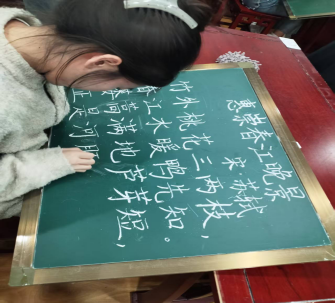 惠崇春江晚景
宋 苏轼
竹外桃花三两枝，
春江水暖鸭先知。
蒌蒿满地芦芽短，
正是河